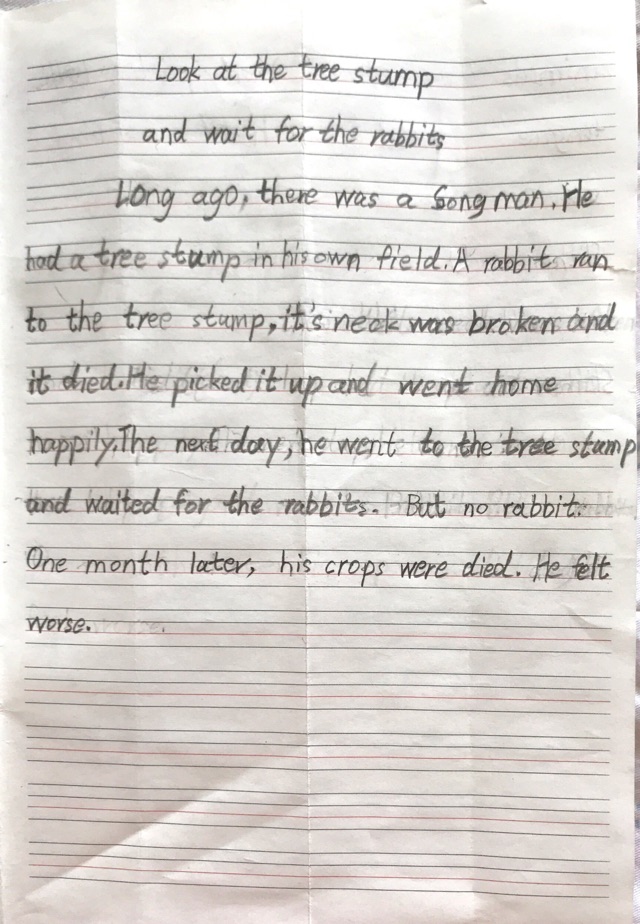 Look at the tree stump
and wait for the rabbits
Long ago, there was a Song man. He
had a tree stump in his own field. A rabbit ran
to the tree stump, it's neck was broken and
it died. He picked it up and went home
happily. The next day, he went to the tree stump
and waited for the rabbits. But no rabbit.
One month later, his crops were died. He felt
worse.